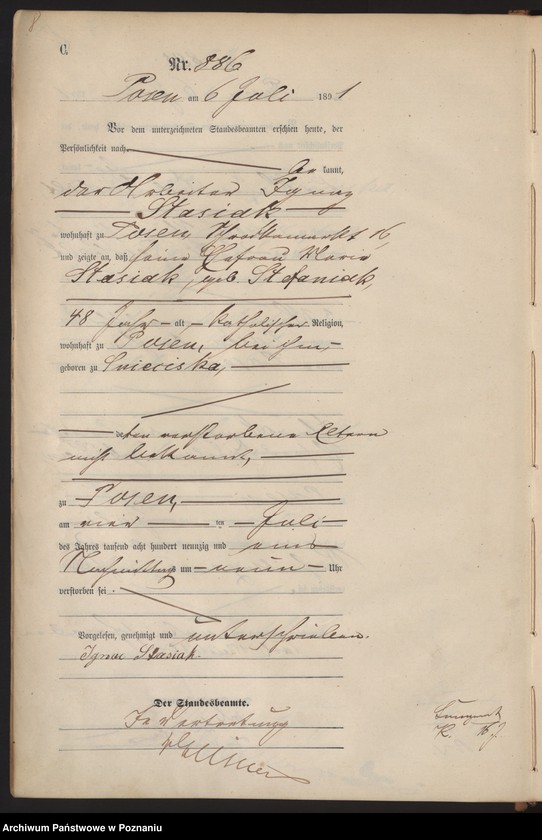 8
C.
Nr. 886
Posen am 6 Juli 1891
Vor dem unterzeichneten Standesbeamten erschien heute, der
Persönlichkeit nach
be kannt,
der Arbeiter Ignaz
Stasiak
wohnhaft zu Posen, 16,
und zeigte an, daß seine Ehefrau Maria
Stasiak, geb. Stefaniak,
48 Jahr alt, katholischer Religion,
wohnhaft zu Posen, bei ihm,
geboren zu
verstorbene Eltern
nicht bekannt,
zu Posen,
am vier ten Juli
des Jahres tausend acht hundert neunzig und eins
Nachmittags um neun Uhr
verstorben sei.
Vorgelesen, genehmigt und unterschrieben.
Ignac Stasiak.
Der Standesbeamte.
In Vertretung
Archiwum Państwowe w Poznaniu